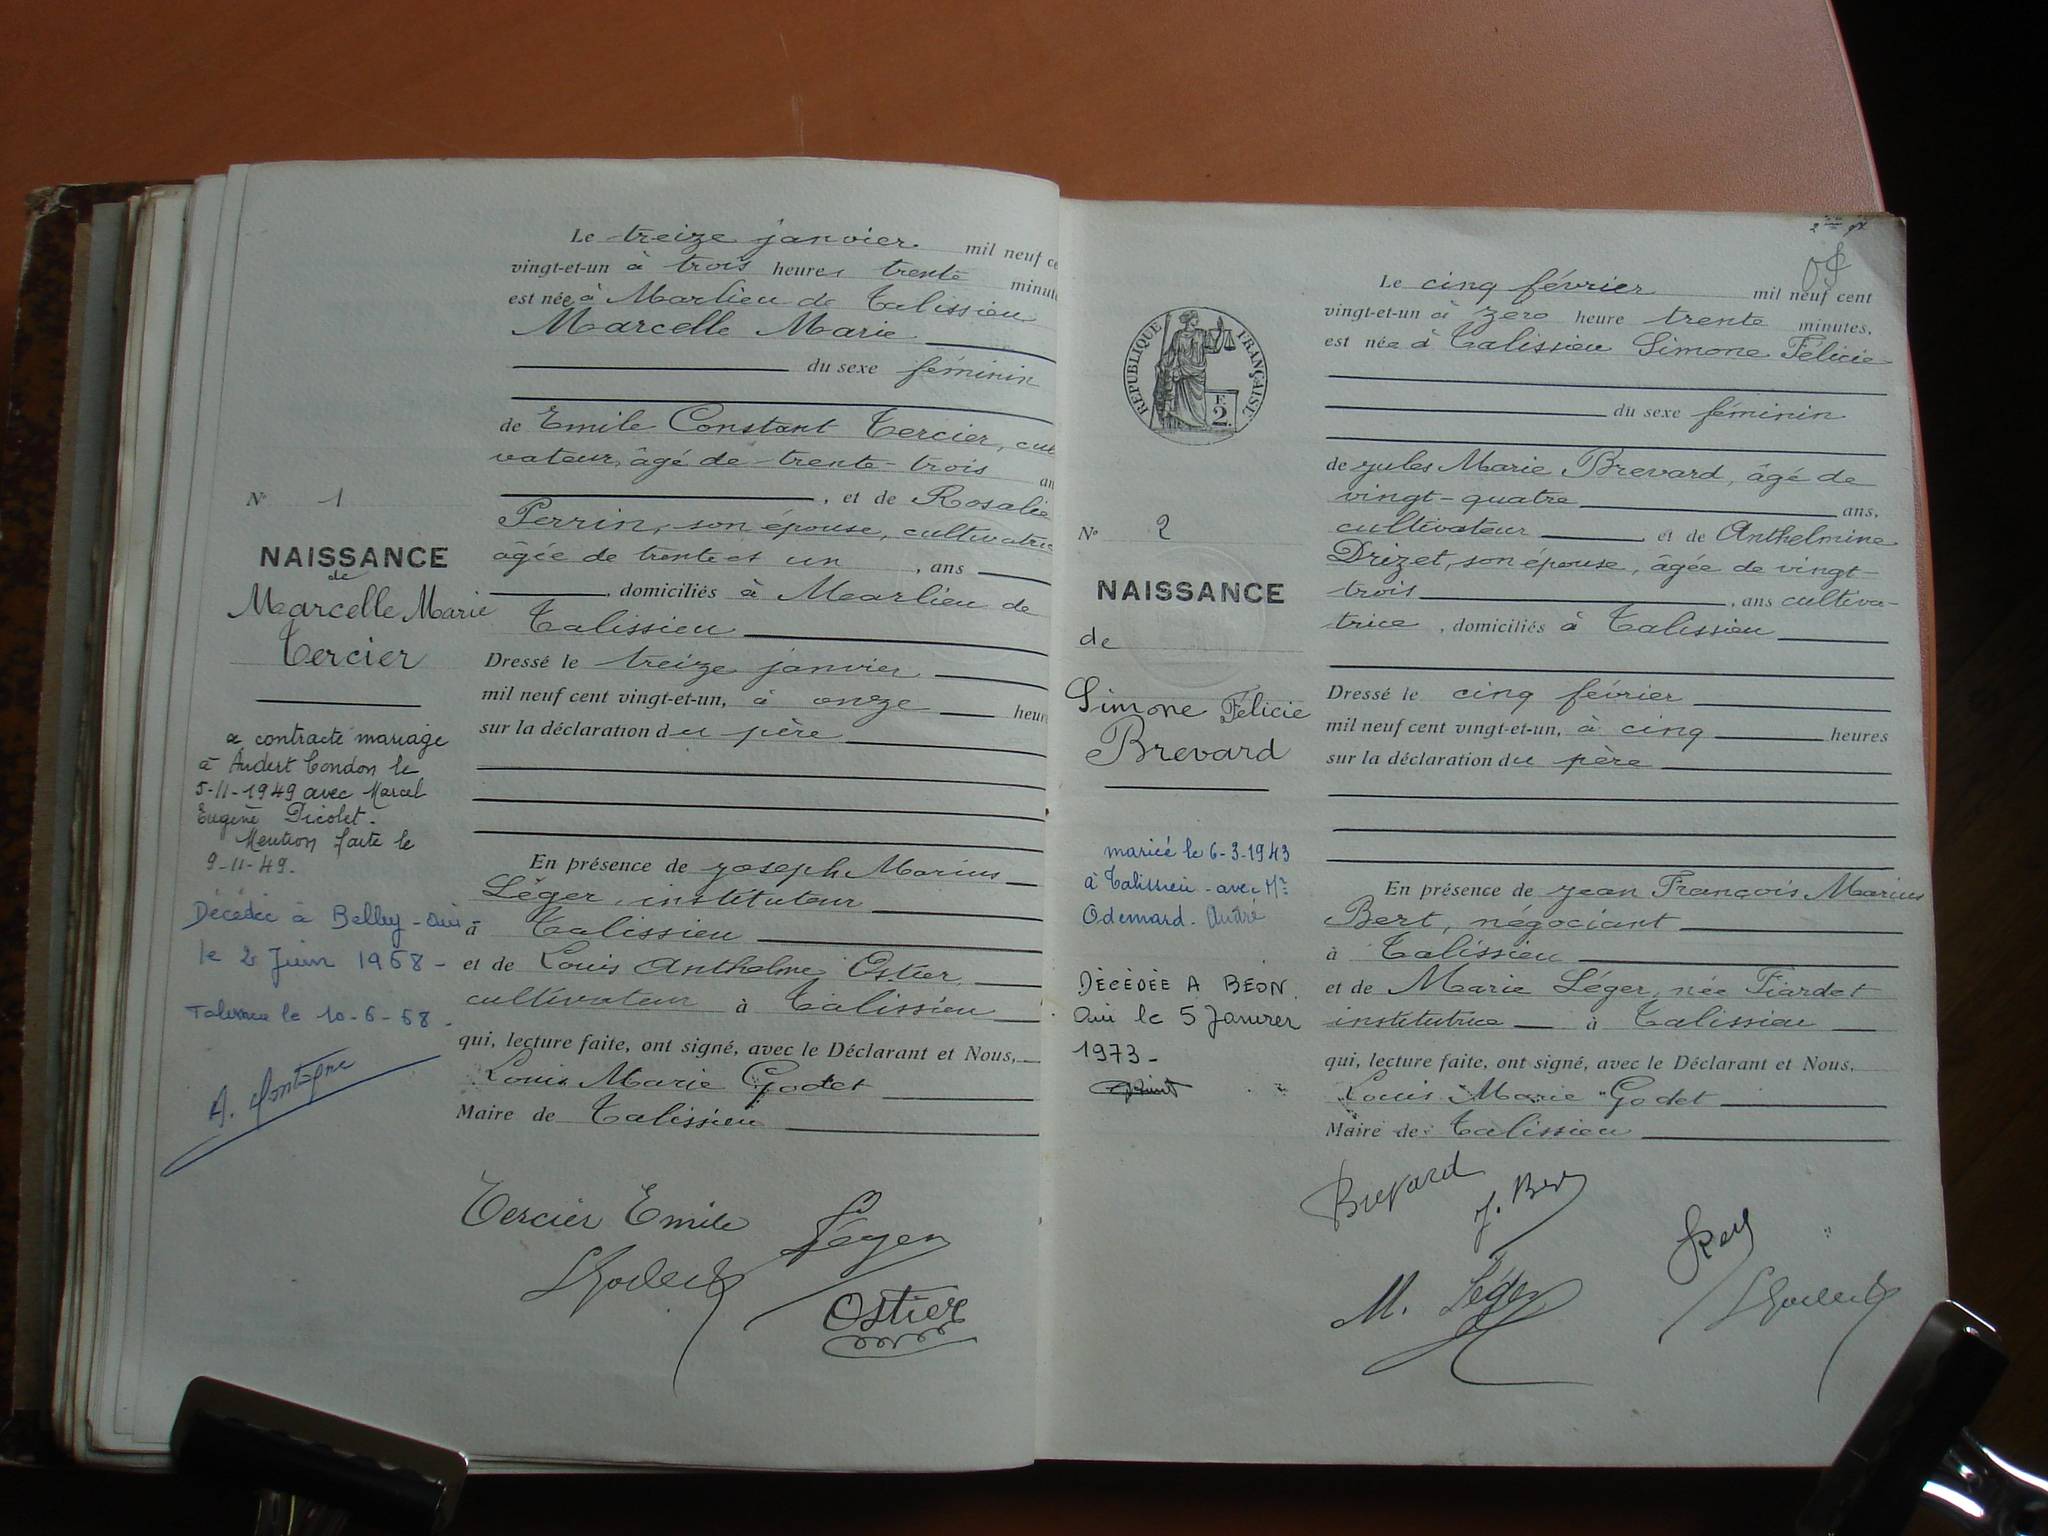 Le treize janvier mil neuf ce
vingt-et-un à trois heures trente minute
est née à Marlieu de Talissieu
Marcelle Marie
du sexe féminin
de Emile Constant Tercier, cul
vateur, âgé de trente-trois an
, et de Rosalie
Perrin, son épouse, cultivatrice
âgée de trente et un , ans
, domiciliés à Marlieu de
Talissieu
Dressé le treize janvier
mil neuf cent vingt-et-un, à onze heur
sur la déclaration du père
En présence de Joseph Marius
Léger, instituteur
à Talissieu
et de Louis Anthelme Ostier,
cultivateur à Talissieu
qui, lecture faite, ont signé, avec le Déclarant et Nous,
Louis Marie Godet
Maire de Talissieu
Tercier Emile Léger
LGodet
Ostier
N° 1
NAISSANCE
de
Marcelle Marie
Tercier
a contracté mariage
à Andert Condon le
5-11-1949 avec Marcel
Eugène Picolet.
Mention faite le
9-11-49.
Décédée à Belley - Ain
le 2 Juin 1968 -
le 10-6-68.
A. Montagne
Le cinq février mil neuf cent
vingt-et-un à zéro heure trente minutes.
est née à Talissieu Simone Félicie
du sexe féminin
de Jules Marie Brevard, âgé de
vingt-quatre ans,
cultivateur et de Anthelmine
Drizet, son épouse, âgée de vingt-
trois , ans cultiva-
trice , domiciliés à Talissieu
Dressé le cinq février
mil neuf cent vingt-et-un, à cinq heures
sur la déclaration du père
En présence de Jean François Marius
Bert, négociant
à Talissieu
et de Marie Léger, née Fiardet
institutrice à Talissieu
qui, lecture faite, ont signé, avec le Déclarant et Nous,
Louis Marie Godet
Maire de Talissieu
Brevard
J. Bert
M. Léger
LGodet
RÉPUBLIQUE FRANÇAISE
F.
2.
N° 2
NAISSANCE
de
Simone Félicie
Brevard
mariée le 6-3-1943
à Talissieu - avec Mr
Odemard - André
DÉCÉDÉE A BEON
Ain le 5 Janvier
1973 -